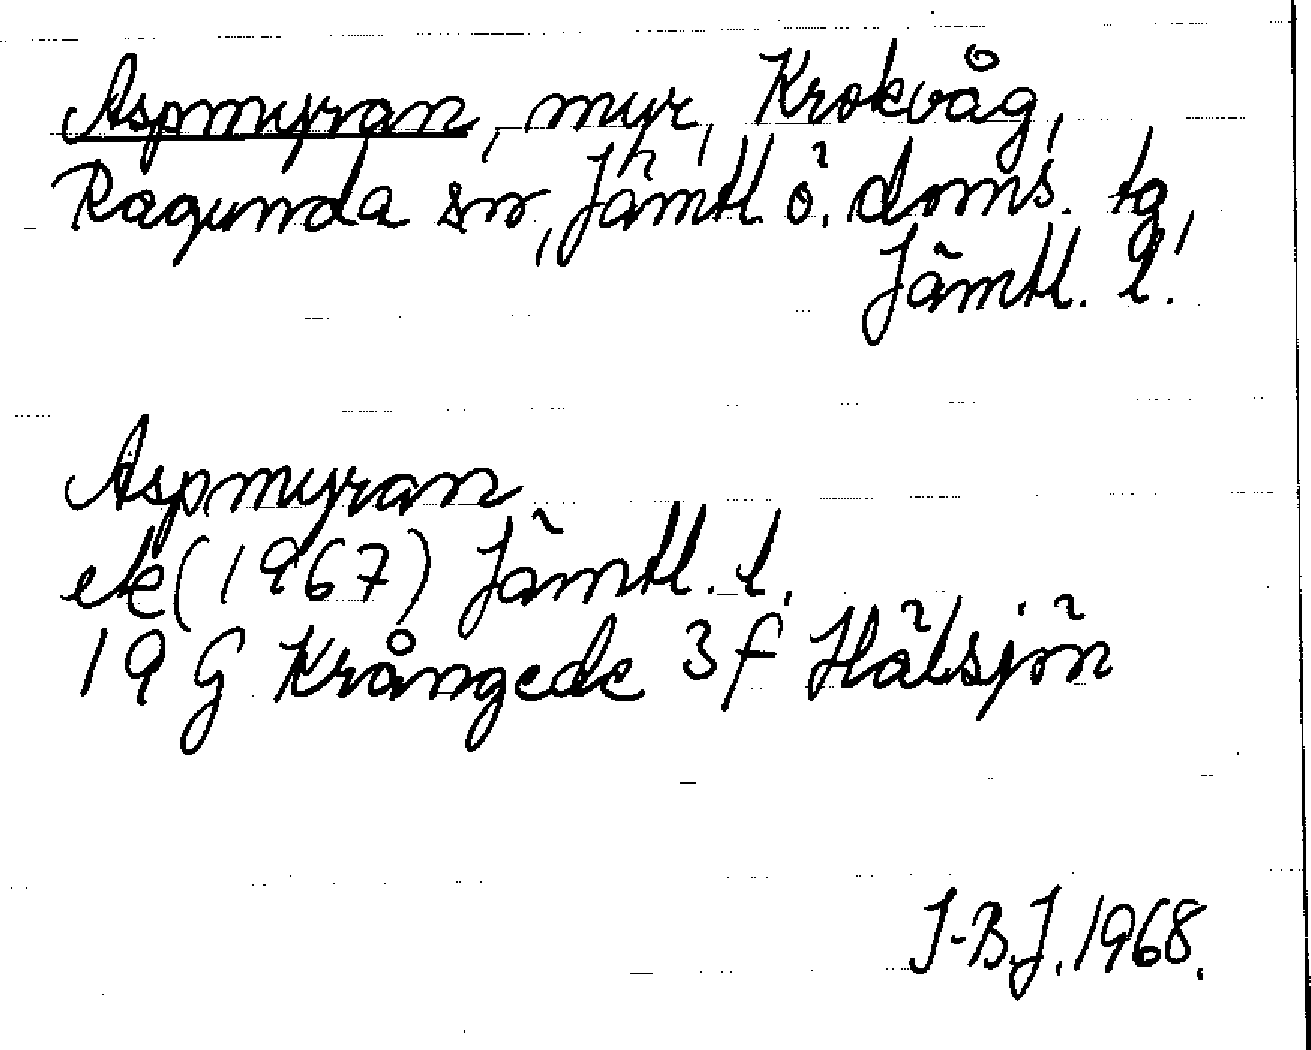 Aspmyran, myr, Krokvåg,
Ragunda sn, Jämtl. ö. doms. tg,
Jämtl. l.
Aspmyran
ek (1967) Jämtl. l.
19 G Krångede 3 f Hälsjön
I-B.J. 1968.